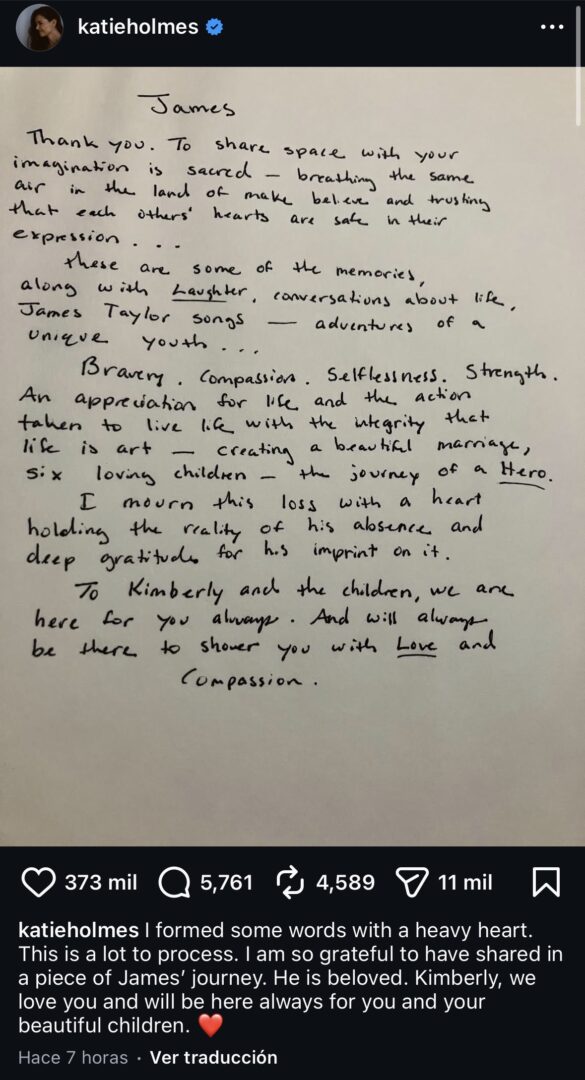 katieholmes
James
Thank you. To share space with your
imagination is sacred — breathing the same
air in the land of make believe and trusting
that each others' hearts are safe in their
expression . . .
these are some of the memories,
along with Laughter, conversations about life,
James Taylor songs — adventures of a
unique youth . . .
Bravery. Compassion. Selflessness. Strength.
An appreciation for life and the action
taken to live life with the integrity that
life is art — creating a beautiful marriage,
six loving children — the journey of a Hero.
I mourn this loss with a heart
holding the reality of his absence and
deep gratitude for his imprint on it.
To Kimberly and the children, we are
here for you always. And will always
be there to shower you with Love and
Compassion.
373 mil 5,761 4,589 11 mil
katieholmes I formed some words with a heavy heart.
This is a lot to process. I am so grateful to have shared in
a piece of James’ journey. He is beloved. Kimberly, we
love you and will be here always for you and your
beautiful children. ❤️
Hace 7 horas · Ver traducción